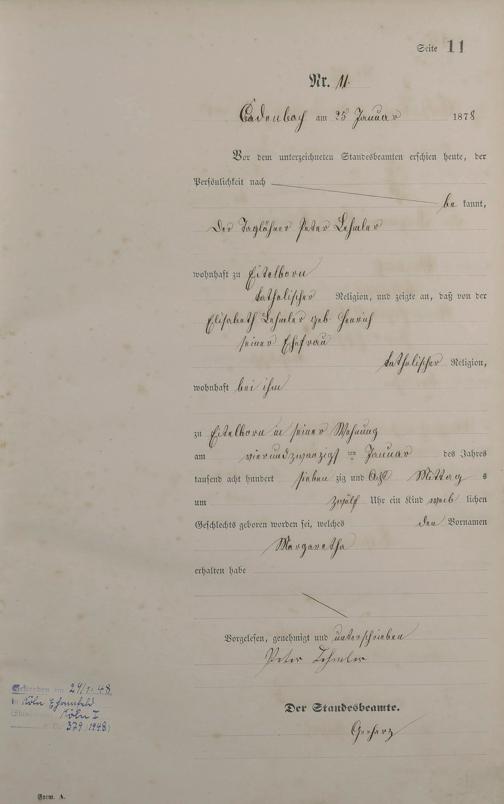 Seite 11
Nr. 11.
Cadenbach am 25 Januar 1878
Vor dem unterzeichneten Standesbeamten erschien heute, der
Persönlichkeit nach
be kannt,
Der Taglöhner Peter Lehmler
wohnhaft zu Eitelborn
katholischer Religion, und zeigte an, daß von der
Elisabeth Lehmler geb Henrich
seiner Ehefrau
katholischer Religion,
wohnhaft bei ihm
zu Eitelborn in seiner Wohnung
am vierundzwanzigst = Januar des Jahres
tausend acht hundert sieben zig und Acht Mittag s
um zwölf Uhr ein Kind weib lichen
Geschlechts geboren worden sei, welches den Vornamen
Margaretha
erhalten habe
Vorgelesen, genehmigt und unterschrieben
Peter Lehmler
Der Standesbeamte.
Gerharz
Gestorben am 24/1.48.
in Köln Ehrenfeld
Köln I
379 (1948)
Form. A.